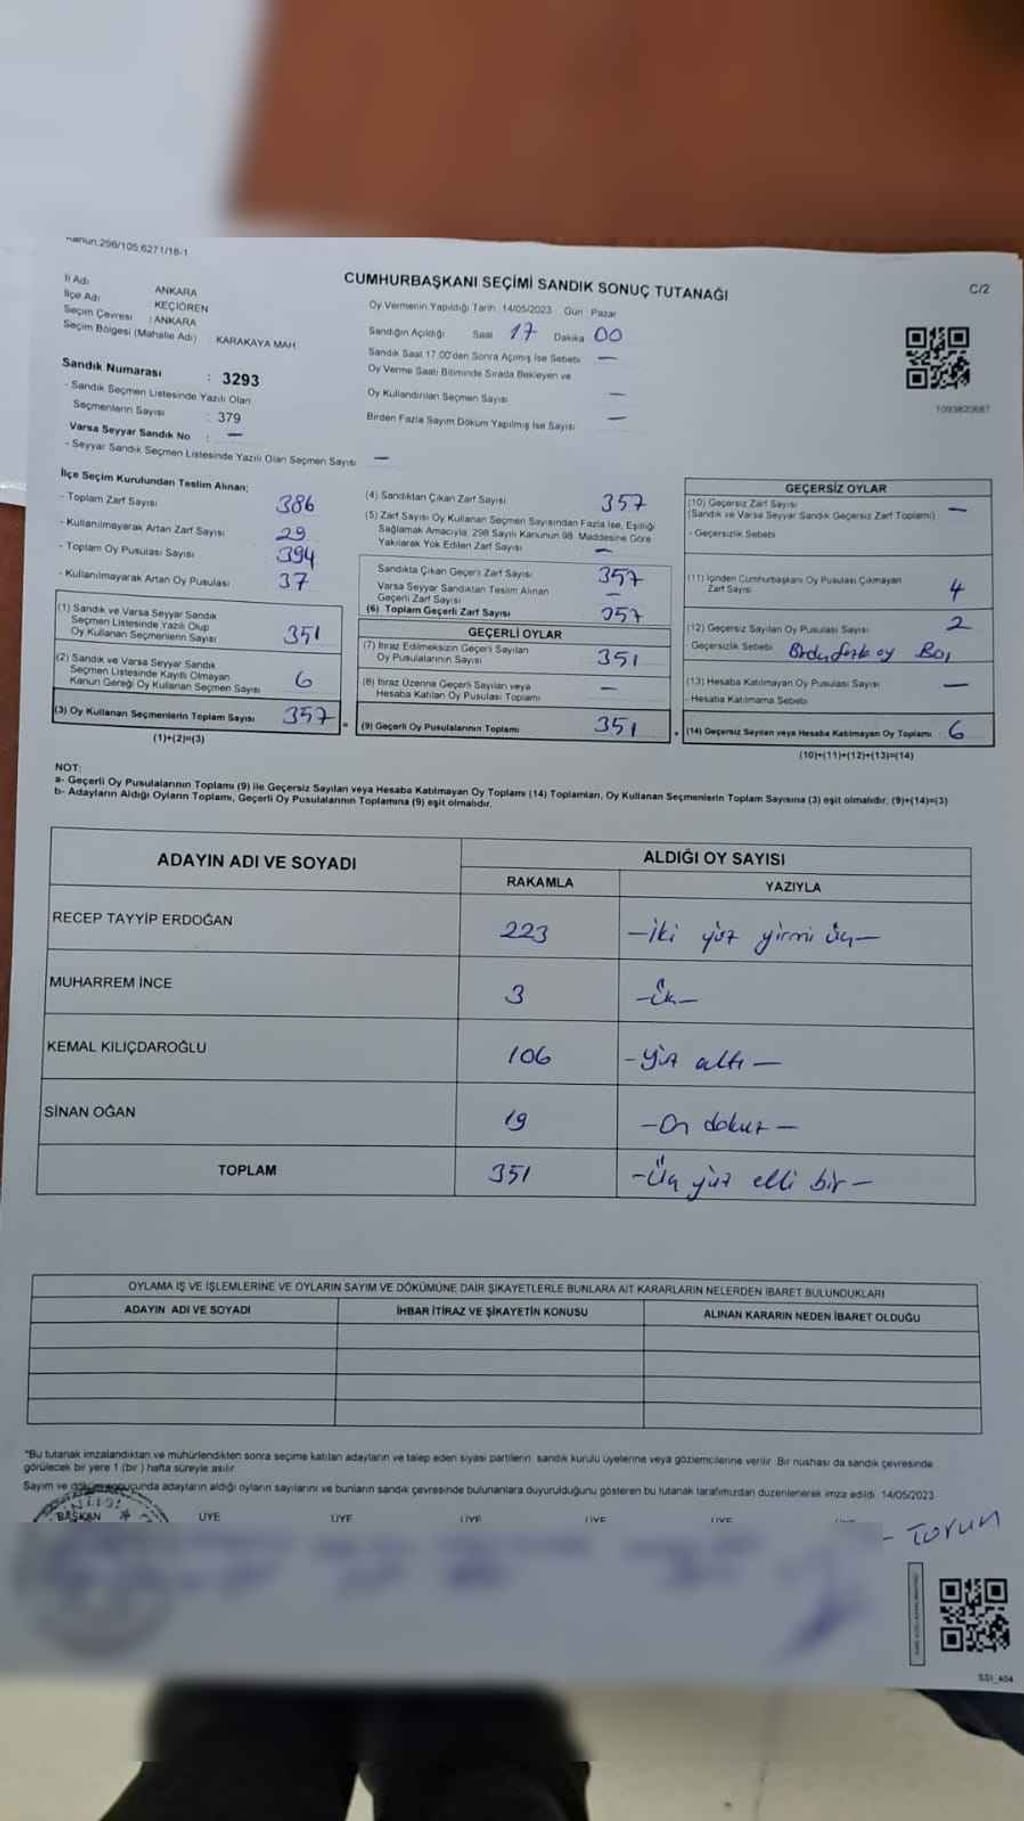 CUMHURBAŞKANI SEÇİMİ SANDIK SONUÇ TUTANAĞI
C/2
İl Adı ANKARA
İlçe Adı KEÇİÖREN
Seçim Çevresi : ANKARA
Seçim Bölgesi (Mahalle Adı) KARAKAYA MAH.
Sandık Numarası : 3293
- Sandık Seçmen Listesinde Yazılı Olan
Seçmenlerin Sayısı : 379
Varsa Seyyar Sandık No : —
- Seyyar Sandık Seçmen Listesinde Yazılı Olan Seçmen Sayısı —
Oy Vermenin Yapıldığı Tarih : 14/05/2023 Gün : Pazar
Sandığın Açıldığı Saat 17 Dakika 00
Sandık Saat 17.00'den Sonra Açımış İse Sebebi —
Oy Verme Saati Bitiminde Sırada Bekleyen ve
Oy Kullandırılan Seçmen Sayısı —
Birden Fazla Sayım Döküm Yapılmış İse Sayısı —
İlçe Seçim Kurulundan Teslim Alınan;
- Toplam Zarf Sayısı 386
- Kullanılmayarak Artan Zarf Sayısı 29
- Toplam Oy Pusulası Sayısı 394
- Kullanılmayarak Artan Oy Pusulası 37
(1) Sandık ve Varsa Seyyar Sandık
Seçmen Listesinde Yazılı Olup
Oy Kullanan Seçmenlerin Sayısı 351
(2) Sandık ve Varsa Seyyar Sandık
Seçmen Listesinde Kayıtlı Olmayan
Kanun Gereği Oy Kullanan Seçmen Sayısı 6
(3) Oy Kullanan Seçmenlerin Toplam Sayısı 357
(1)+(2)=(3)
(4) Sandıktan Çıkan Zarf Sayısı 357
(5) Zarf Sayısı Oy Kullanan Seçmen Sayısından Fazla İse, Eşitliği
Sağlamak Amacıyla, 298 Sayılı Kanunun 98. Maddesine Göre
Yakılarak Yok Edilen Zarf Sayısı —
Sandıkta Çıkan Geçerli Zarf Sayısı 357
Varsa Seyyar Sandıktan Teslim Alınan
Geçerli Zarf Sayısı —
(6) Toplam Geçerli Zarf Sayısı 357
GEÇERLİ OYLAR
(7) İtiraz Edilmeksizin Geçerli Sayılan
Oy Pusulalarının Sayısı 351
(8) İtiraz Üzerine Geçerli Sayılan veya
Hesaba Katılan Oy Pusulası Toplamı —
(9) Geçerli Oy Pusulalarının Toplamı 351
GEÇERSİZ OYLAR
(10) Geçersiz Zarf Sayısı —
(Sandık ve Varsa Seyyar Sandık Geçersiz Zarf Toplamı)
- Geçersizlik Sebebi
(11) İçinden Cumhurbaşkanı Oy Pusulası Çıkmayan
Zarf Sayısı 4
(12) Geçersiz Sayılan Oy Pusulası Sayısı 2
Geçersizlik Sebebi oy Boş
(13) Hesaba Katılmayan Oy Pusulası Sayısı —
- Hesaba Katılmama Sebebi
(14) Geçersiz Sayılan veya Hesaba Katılmayan Oy Toplamı 6
(10)+(11)+(12)+(13)=(14)
NOT:
a- Geçerli Oy Pusulalarının Toplamı (9) ile Geçersiz Sayılan veya Hesaba Katılmayan Oy Toplamı (14) Toplamları, Oy Kullanan Seçmenlerin Toplam Sayısına (3) eşit olmalıdır. (9)+(14)=(3)
b- Adayların Aldığı Oyların Toplamı, Geçerli Oy Pusulalarının Toplamına (9) eşit olmalıdır.
ADAYIN ADI VE SOYADI
ALDIĞI OY SAYISI
RAKAMLA YAZIYLA
RECEP TAYYİP ERDOĞAN 223 —iki yüz yirmi üç—
MUHARREM İNCE 3 —Üç—
KEMAL KILIÇDAROĞLU 106 —yüz altı—
SİNAN OĞAN 19 —On dokuz—
TOPLAM 351 —Üç yüz elli bir—
OYLAMA İŞ VE İŞLEMLERİNE VE OYLARIN SAYIM VE DÖKÜMÜNE DAİR ŞİKAYETLERLE BUNLARA AİT KARARLARIN NELERDEN İBARET BULUNDUKLARI
ADAYIN ADI VE SOYADI İHBAR İTİRAZ VE ŞİKAYETİN KONUSU ALINAN KARARIN NEDEN İBARET OLDUĞU
*Bu tutanak imzalandıktan ve mühürlendikten sonra seçime katılan adayların ve talep eden siyasi partilerin sandık kurulu üyelerine veya gözlemcilerine verilir. Bir nüshası da sandık çevresinde
görülecek bir yere 1 (bir) hafta süreyle asılır.
Sayım ve döküm sonucunda adayların aldığı oyların sayılarını ve bunların sandık çevresinde bulunanlara duyurulduğunu gösteren bu tutanak tarafımızdan düzenlenerek imza edildi. 14/05/2023
BAŞKAN ÜYE ÜYE ÜYE ÜYE ÜYE
- Torun